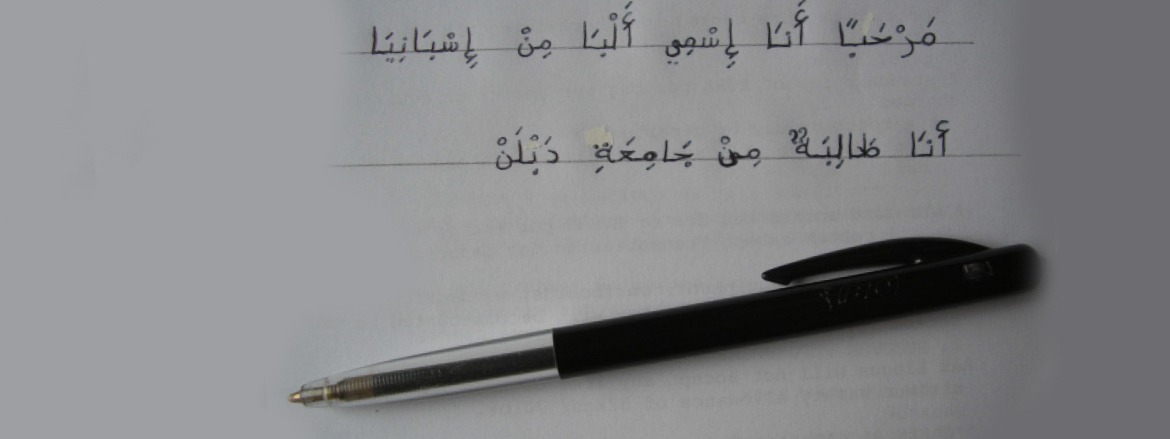 مَرْحَبًا أَنَا إِسْمِي أَلْبَا مِنْ إِسْبَانِيَا
أَنَا طَالِبَةٌ مِنْ جَامِعَةِ دَبْلَنْ